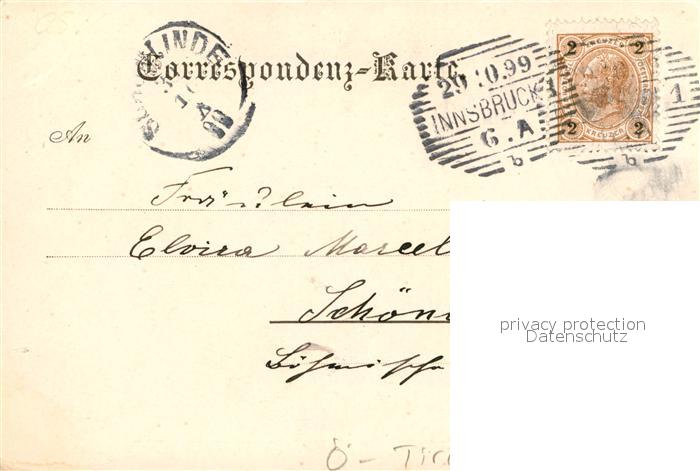 Correspondenz-Karte.
LINDE
99
29.10.99
INNSBRUCK 1
6.A
b
2 KREUZER 2
2 KREUZER 2
1
b
An
Fräulein
Elvira Marcel
Schön
Böhmische
privacy protection
Datenschutz
Ö - Tir